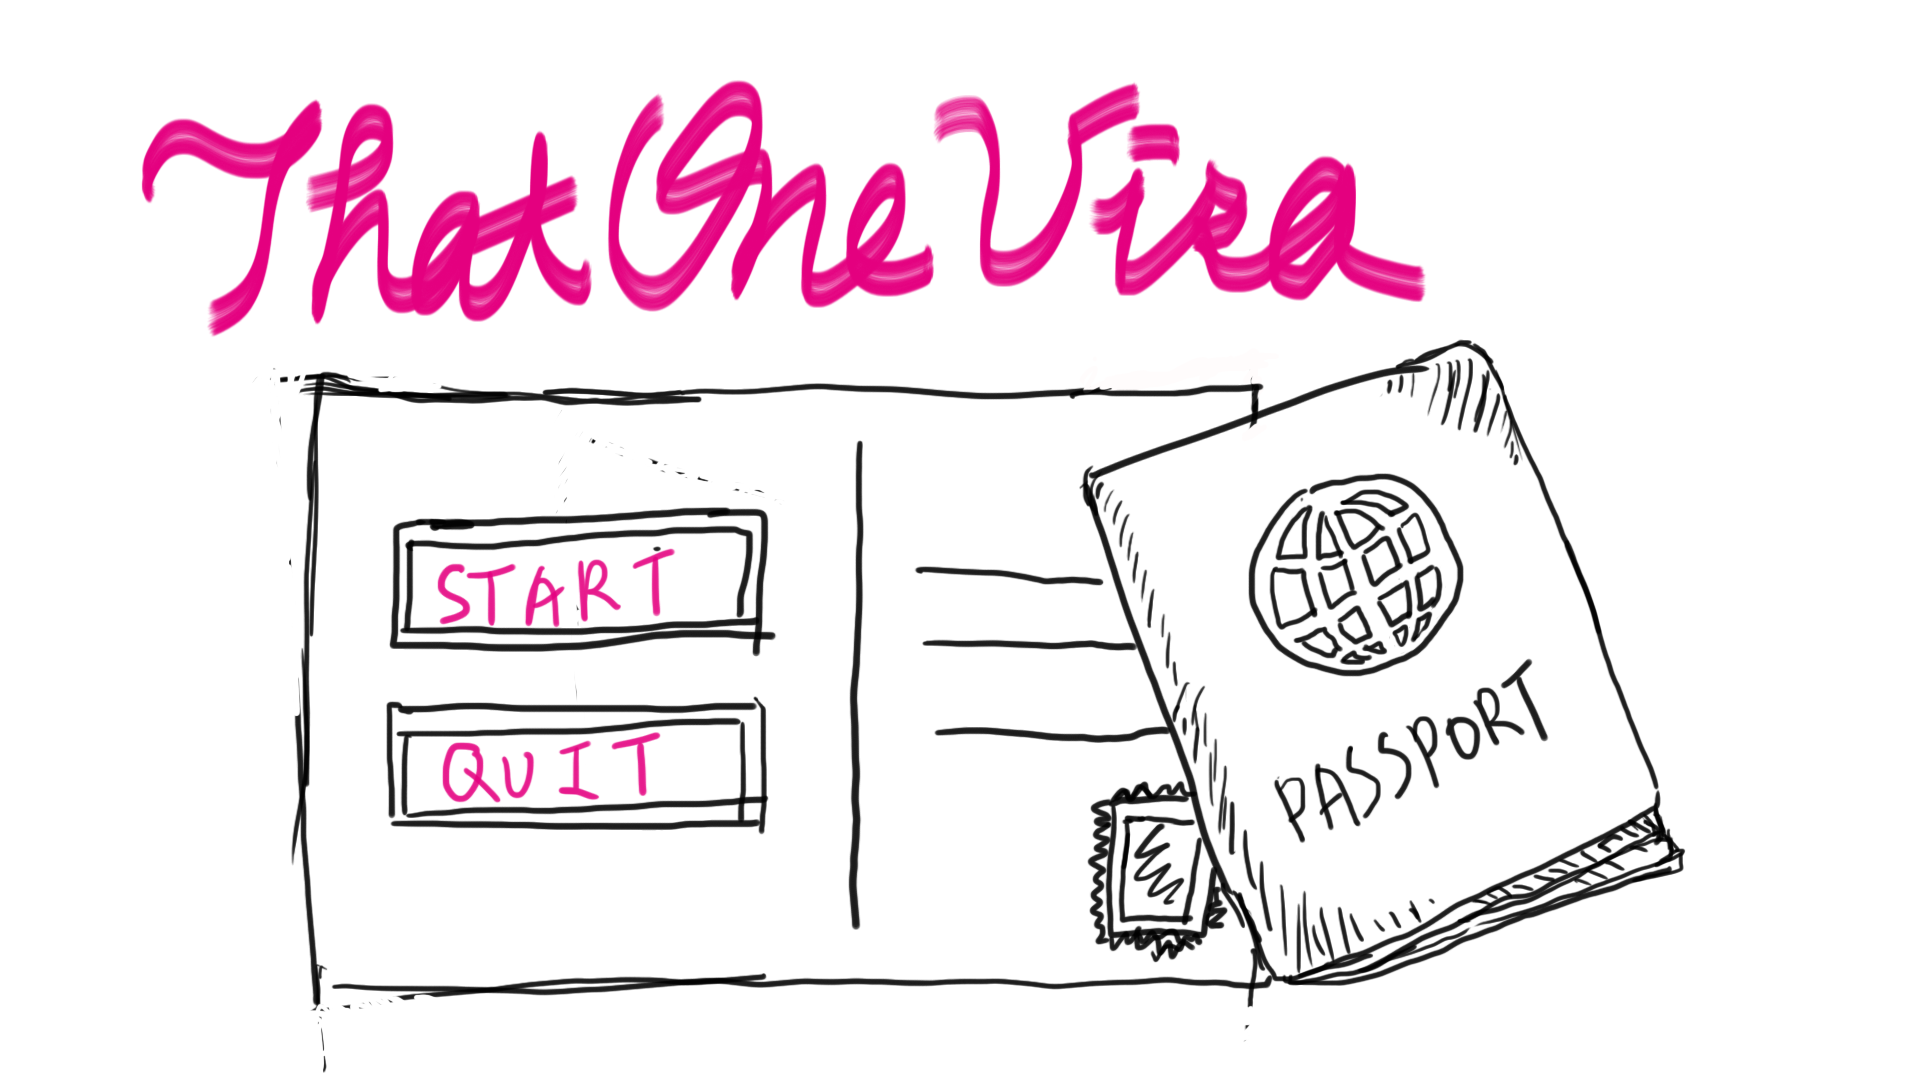 That One Visa
START
QUIT
PASSPORT